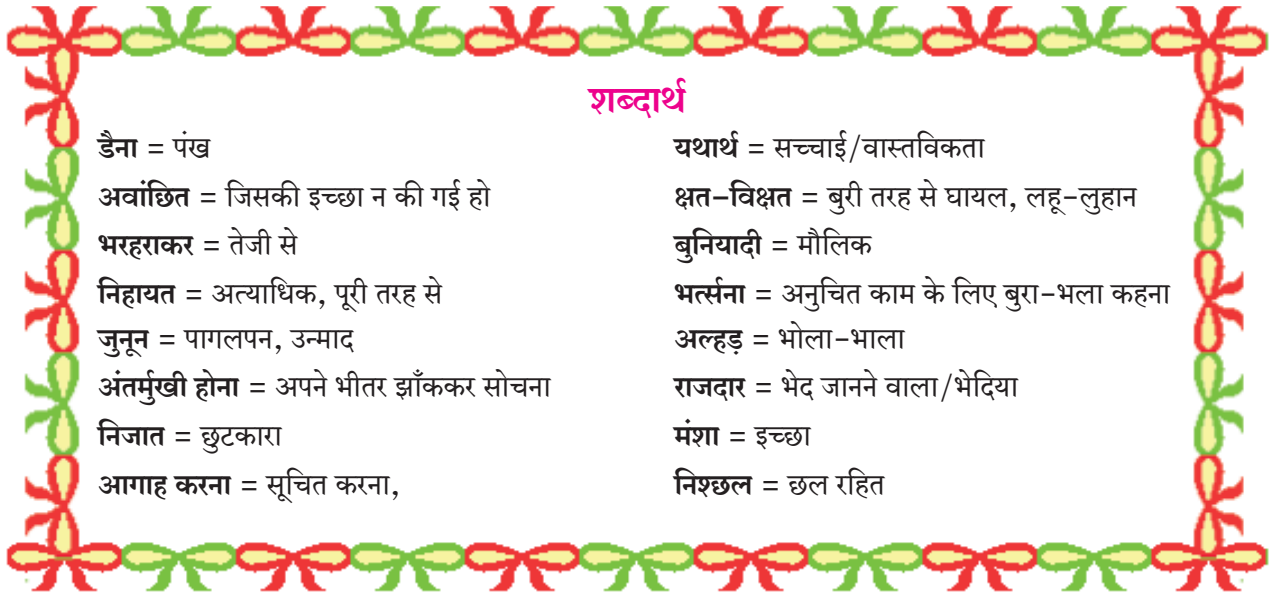 शब्दार्थ
डैना = पंख
अवांछित = जिसकी इच्छा न की गई हो
भरहराकर = तेजी से
निहायत = अत्याधिक, पूरी तरह से
जुनून = पागलपन, उन्माद
अंतर्मुखी होना = अपने भीतर झाँककर सोचना
निजात = छुटकारा
आगाह करना = सूचित करना,
यथार्थ = सच्चाई/वास्तविकता
क्षत-विक्षत = बुरी तरह से घायल, लहू-लुहान
बुनियादी = मौलिक
भर्त्सना = अनुचित काम के लिए बुरा-भला कहना
अल्हड़ = भोला-भाला
राजदार = भेद जानने वाला/भेदिया
मंशा = इच्छा
निश्छल = छल रहित